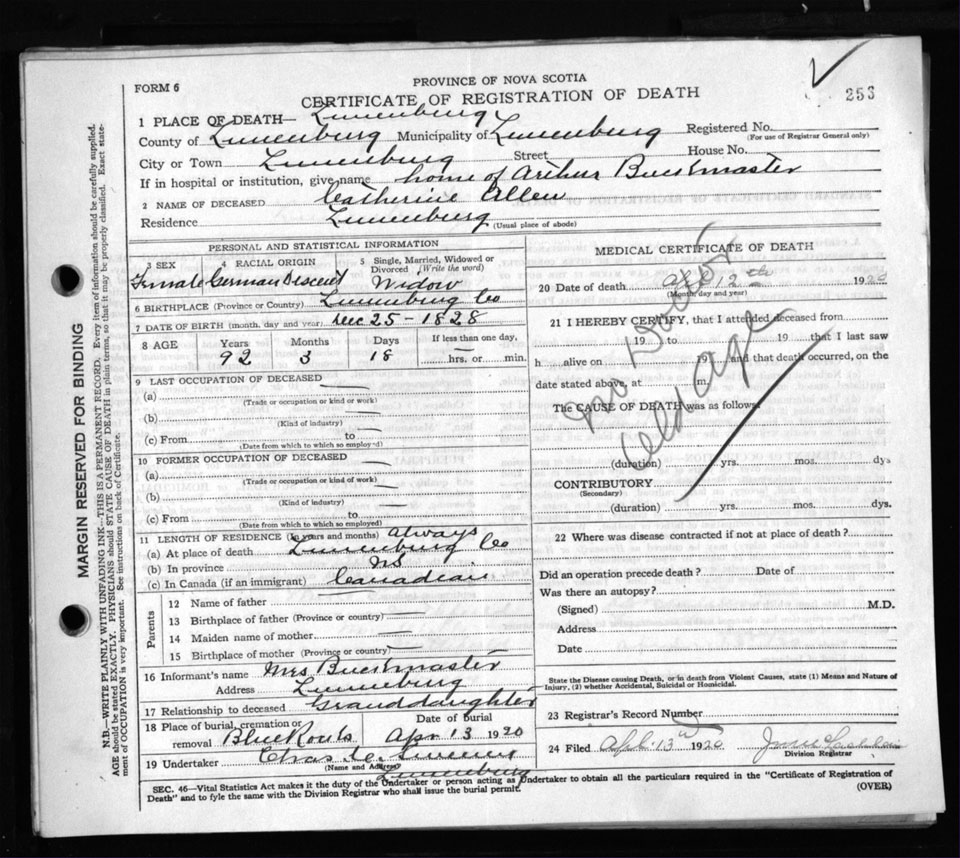 FORM 6
PROVINCE OF NOVA SCOTIA
CERTIFICATE OF REGISTRATION OF DEATH
253
1 PLACE OF DEATH— Lunenburg
County of Lunenburg Municipality of Lunenburg Registered No.
(For use of Registrar General only)
City or Town Lunenburg Street House No.
If in hospital or institution, give name home of Arthur Buckmaster
2 NAME OF DECEASED Catherine Allen
Residence Lunenburg (Usual place of abode)
PERSONAL AND STATISTICAL INFORMATION
3 SEX 4 RACIAL ORIGIN 5 Single, Married, Widowed or Divorced (Write the word)
Female German Descent Widow
6 BIRTHPLACE (Province or Country) Lunenburg Co
7 DATE OF BIRTH (month, day and year) Dec 25-1828
8 AGE Years Months Days If less than one day,
92 3 18 hrs. or min.
9 LAST OCCUPATION OF DECEASED —
(a) —
(Trade or occupation or kind or work)
(b) —
(Kind of industry)
(c) From to —
(Date from which to which so employed)
10 FORMER OCCUPATION OF DECEASED —
(a) —
(Trade or occupation or kind of work)
(b) —
(Kind of industry)
(c) From to
(Date from which to which so employed)
11 LENGTH OF RESIDENCE (in years and months) always
(a) At place of death Lunenburg Co
(b) In province NS
(c) In Canada (if an immigrant) Canadian
Parents
12 Name of father —
13 Birthplace of father (Province or country) —
14 Maiden name of mother —
15 Birthplace of mother (Province or country) —
16 Informant's name Mrs Buckmaster
Address Lunenburg
17 Relationship to deceased Granddaughter
18 Place of burial, cremation or removal Date of Burial
Blue Rocks Apr 13 1920
19 Undertaker Chas
(Name and Address)
Lunenburg
MEDICAL CERTIFICATE OF DEATH
20 Date of death Apr 12th 1920
(Month, day and year)
21 I HEREBY CERTIFY, that I attended deceased from
19 to 19 that I last saw
h alive on 19 and that death occurred, on the
date stated above, at m.
no Doctor
The CAUSE OF DEATH was as follows
Old age
(duration) yrs. mos. dys
CONTRIBUTORY
(Secondary)
(duration) yrs. mos. dys.
22 Where was disease contracted if not at place of death?
Did an operation precede death? Date of
Was there an autopsy?
(Signed) M.D.
Address
Date
State the Disease causing Death, or in death from Violent Causes, state (1) Means and Nature of
Injury, (2) whether Accidental, Suicidal or Homicidal.
23 Registrar's Record Number
24 Filed Apl. 13th 1920
Division Registrar
SEC. 46—Vital Statistics Act makes it the duty of the Undertaker or person acting as Undertaker to obtain all the particulars required in the "Certificate of Registration of
Death" and to fyle the same with the Division Registrar who shall issue the burial permit. (OVER)
MARGIN RESERVED FOR BINDING
N.B.—WRITE PLAINLY WITH UNFADING INK—THIS IS A PERMANENT RECORD. Every item of information should be carefully supplied.
AGE should be stated EXACTLY. PHYSICIANS should STATE CAUSE OF DEATH in plain terms, so that it may be properly classified. Exact state-
ment of OCCUPATION is very important. See instructions on back of Certificate.